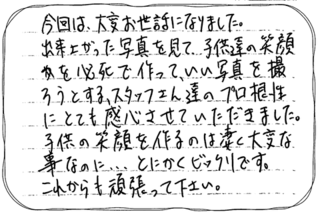 今回は、大変お世話になりました。
出来上がった写真を見て、子供達の笑顔
を必死で作って、いい写真を撮
ろうとする、スタッフさん達のプロ根性
にとても感心させていただきました。
子供の笑顔を作るのは凄く大変な
事なのに…とにかくビックリです。
これからも頑張って下さい。